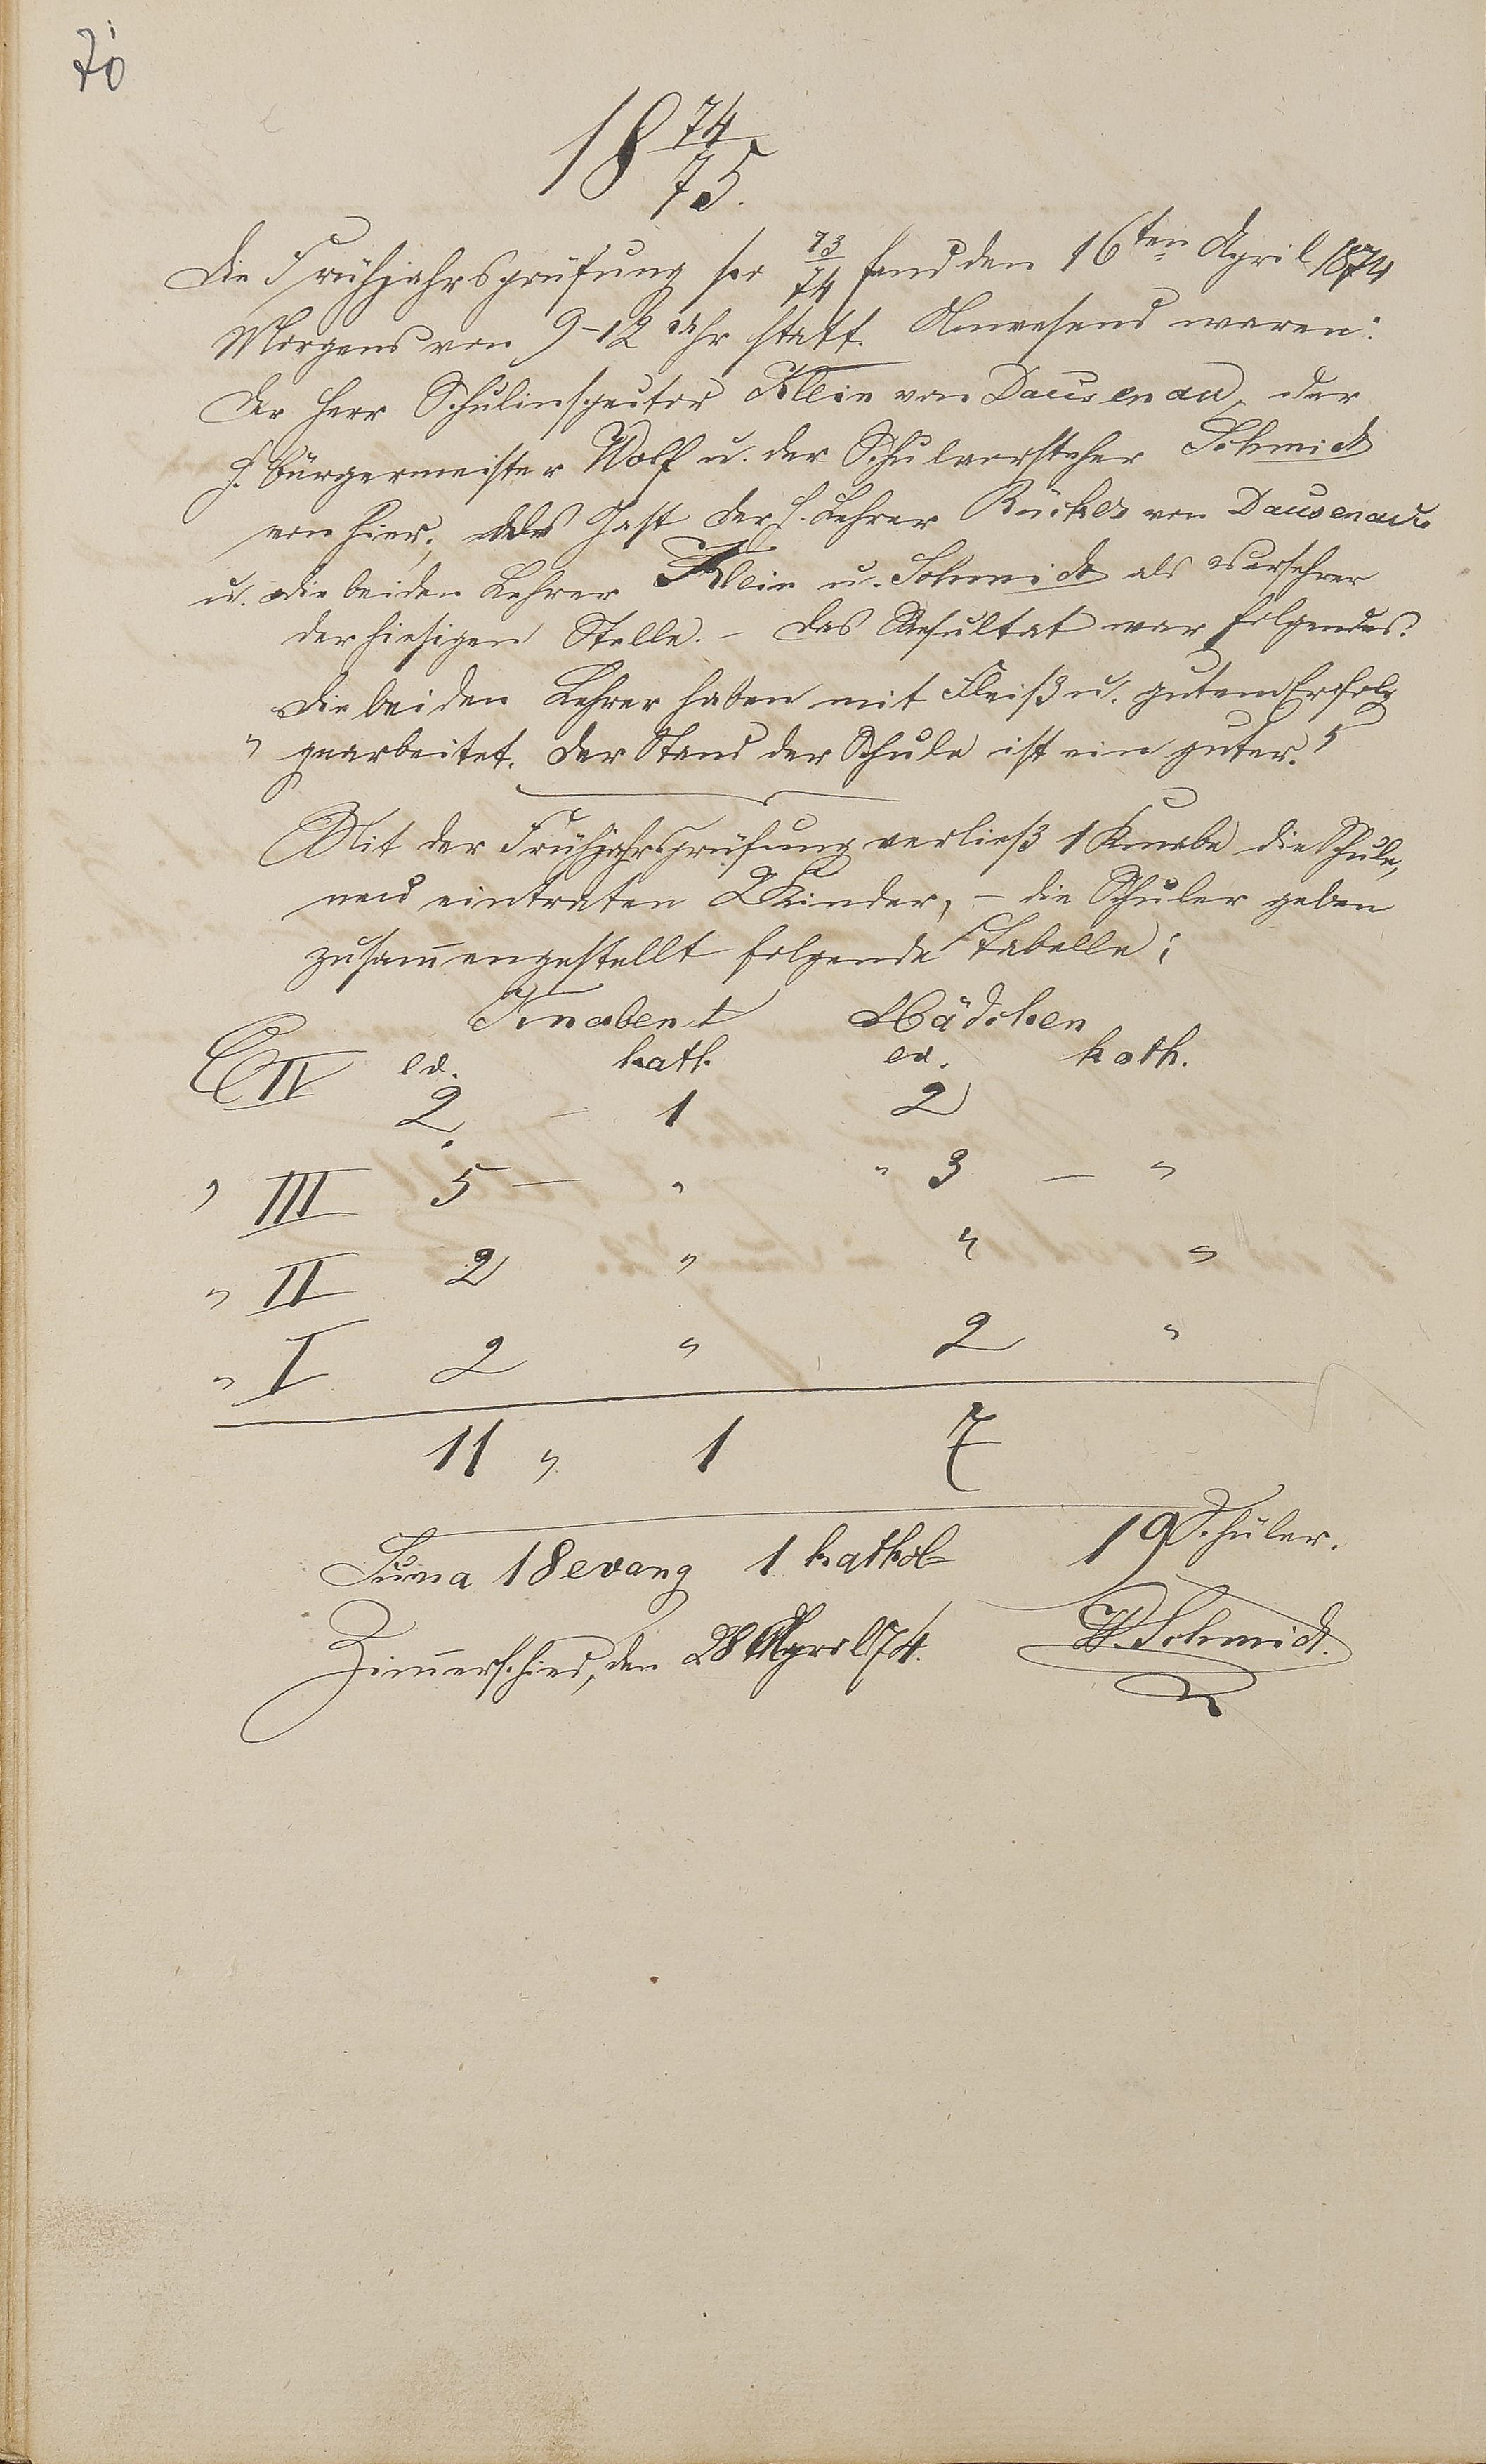 70
18 74/75.
Die Frühjahrsprüfung pro 73/74 fand den 16ten April 1874
Morgens von 9-12 Uhr statt. Anwesend waren:
Der Herr Schulinspector Klein von Dausenau, der
H. Bürgermeister Wolf u. der Schulvorsteher Schmidt
von hier; als Gast der H. Lehrer Bücher von Dausenau
u. die beiden Lehrer Klein u. Schmidt als Versehrer
der hiesigen Stelle. - Das Resultat war folgendes:
Die beiden Lehrer haben mit Fleiß u. gutem Erfolg
" gearbeitet. Der Stand der Schule ist ein guter. "
Mit der Frühjahrsprüfung verließ 1 Knabe die Schule,
neu eintraten 2 Kinder, - die Schüler geben
zusam̄engestellt folgende Tabelle:
Knaben Mädchen
Cl IV ev. kath. ev. kath.
2. - 1 2
" III 5 - " " 3 - "
" II 2 " " "
" I 2 " 2 "
11 " 1 7
Sum̄a 18 evang 1 kathol= 19 Schüler.
Zim̄erschied, den 28 April 74. W. Schmidt.